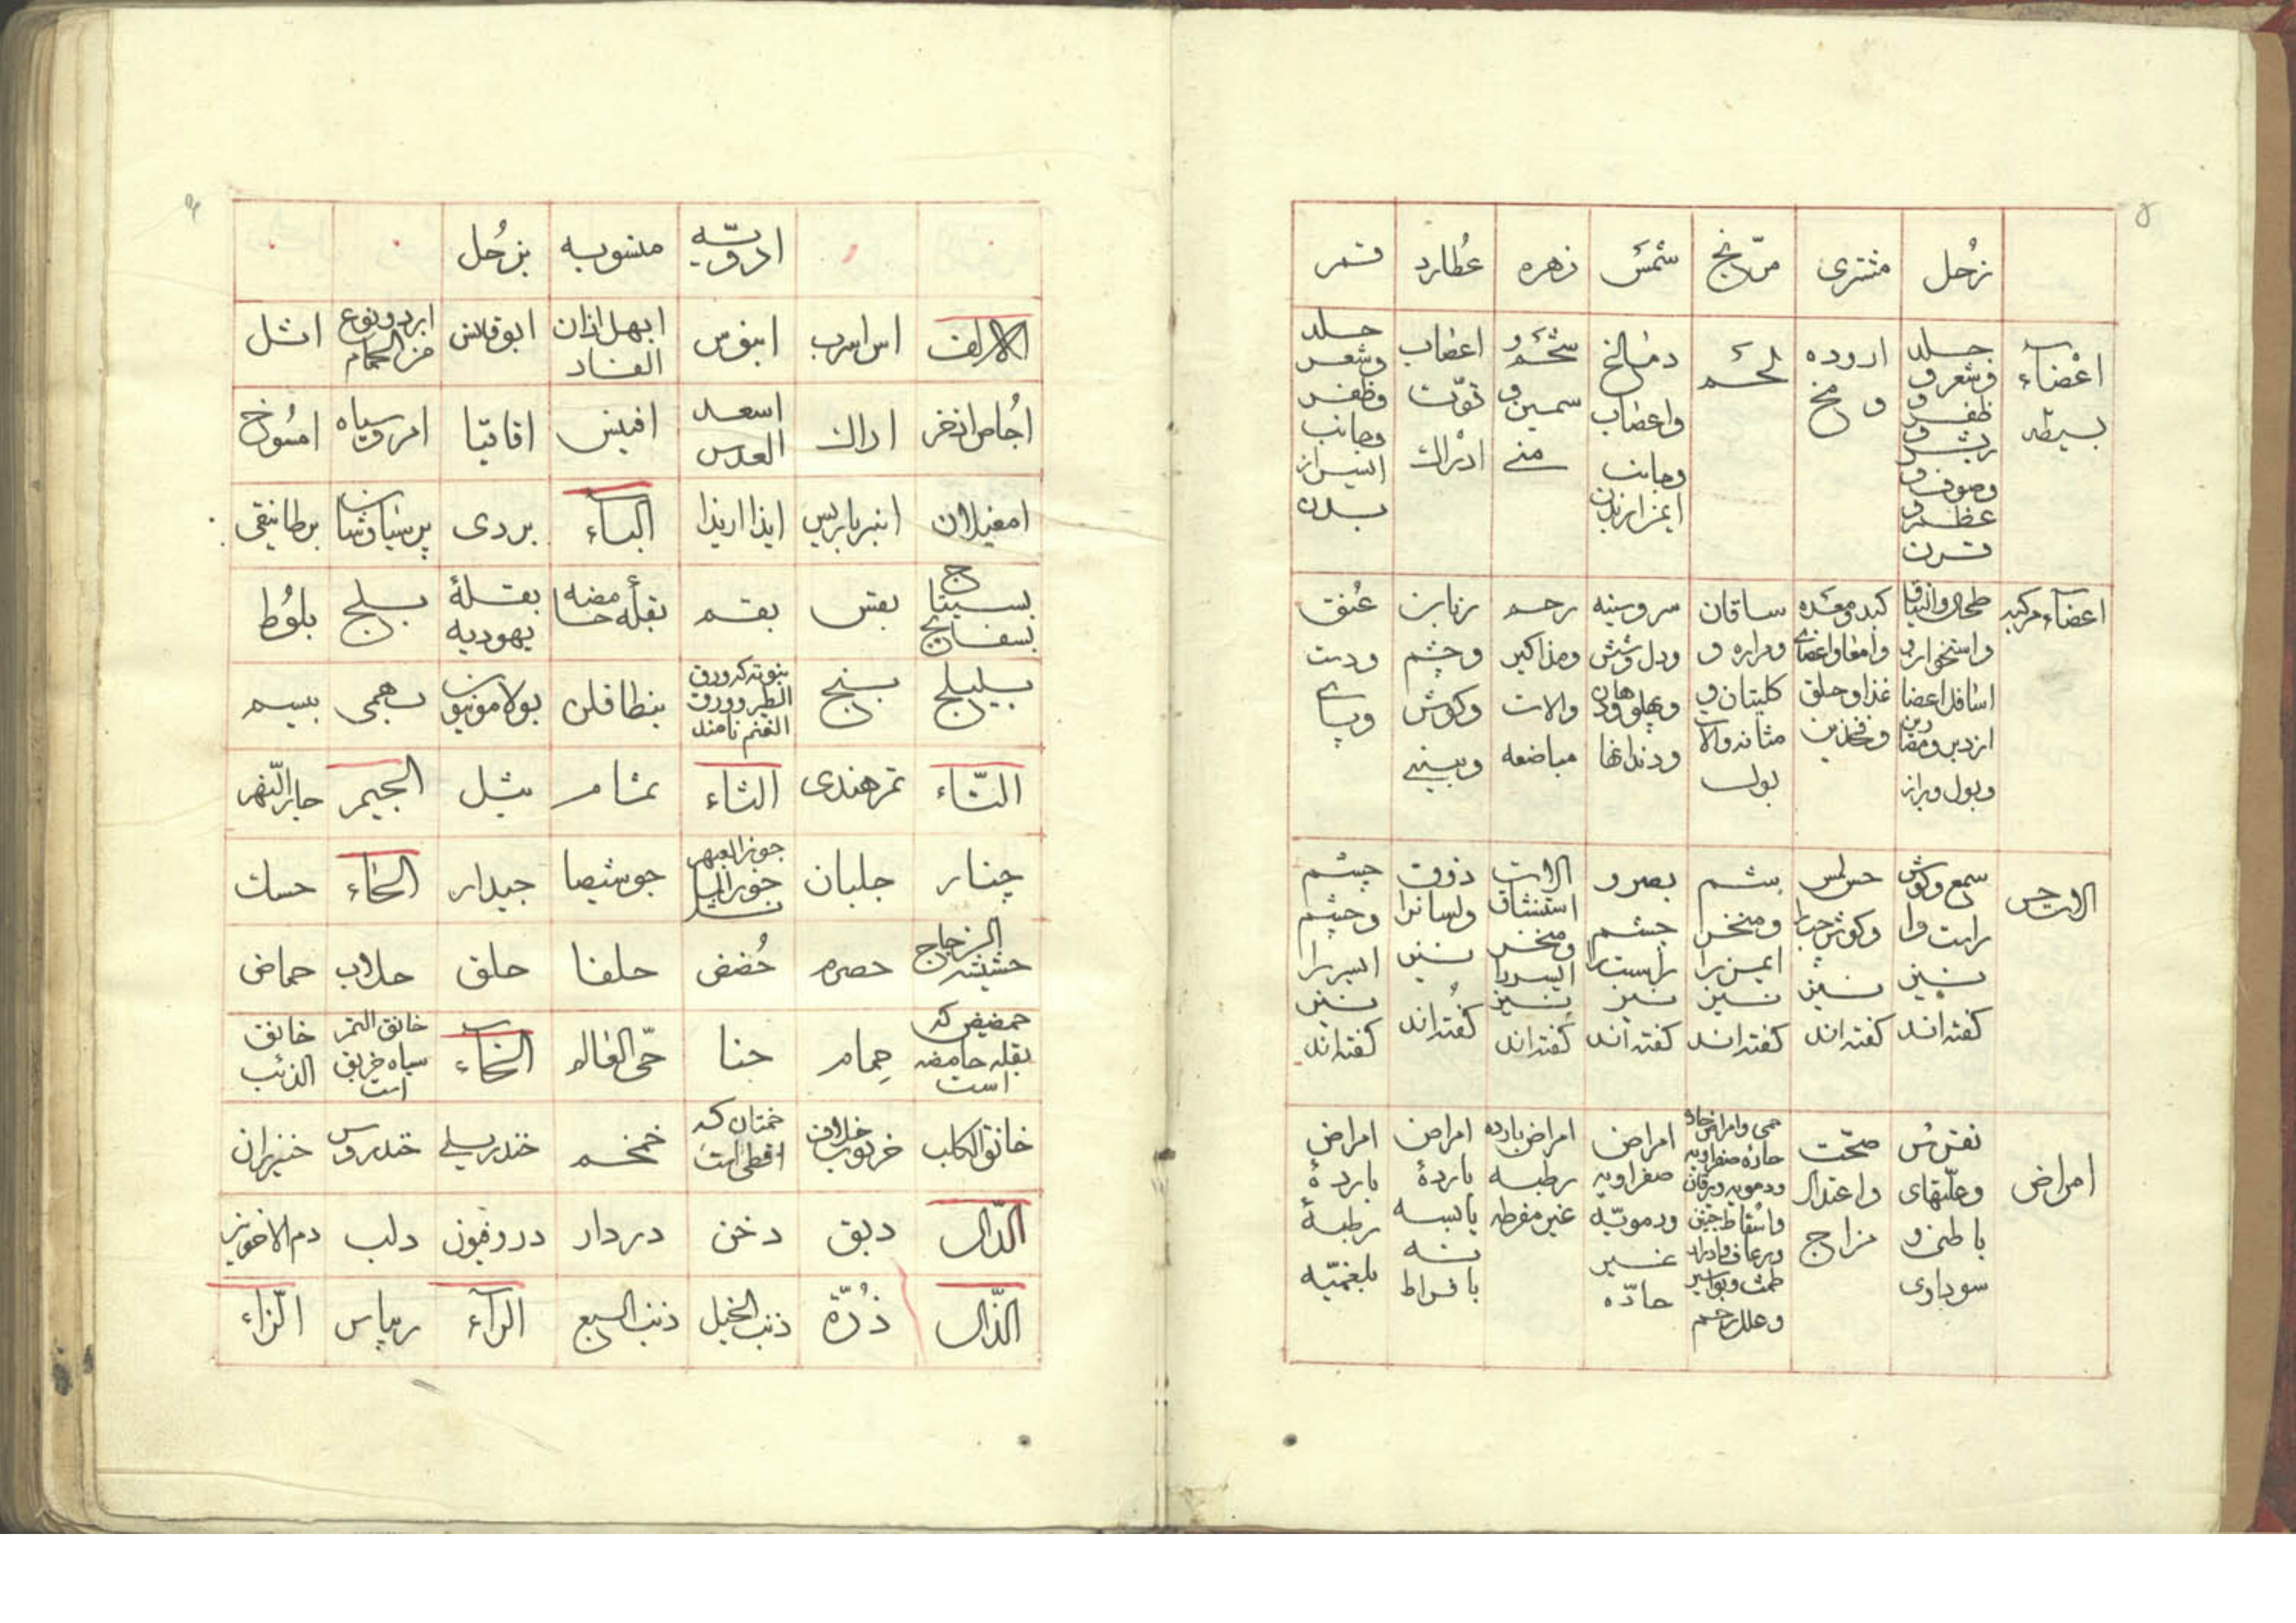 ۵
زُحل مشتری مرّیخ شمسَ زهره عُطارد قمر
اعْضآء بسیطه
جلد وشعر و ظفر و ریش و وصوف و عظم و قرن
اروده و مخ
لحَم
دماغ واعصاب وجانب ایمن ازبدن
شحَم و سمین و منے
اعصاب قوّت ادراك
جلد وشعر وظفر وجانب ایسر از بدن
اعضآء مرکبه
طحال و واستخوان و اسافل اعضا ازدبر وبول وبراز
کبد ومعده وامعا واعضای غذا وحلق وفخذین
ساقان ومراره و کلیتان و مثانه والات بول
سر وسینه ودل وشش وپهلوها ودهان ودندانها
رحم ومذاکیر والات مباضعه
زبان وچشم وکوش وبینے
عُنق ودست وپاے
الات حس
سمع وکوش راست را نیز کفته اند
حس لمس وکوش چپ را نیز کفته اند
شم ومنخر ایمن را نیز کفته اند
بصر و چشم راست را نیز کفته اند
الات استنشاق ومنخر ایسر را نیز کفته اند
ذوق ولسانرا نیز کفته اند
چشم وچشم ایسر را نیز کفته اند
امراض
نقرس وعلّتهای باطنی و سوداوی
صحّت واعتدال مزاج
حمی وامراض حاده حاره صفراویه ودمویه ویرقان واسقاط جنین ورعاف وادرار طمث وبواسیر وعلل رحم
امراض صفراویه ودمویّه غیر حادّه
امراض بارده رطبه غیر مفرطه
امراض باردهٔ یابسه نه بافراط
امراض باردهٔ رطبهٔ بلغمیّه
ادویّه منسوبه بزُحل
الالف اس اسرب ابنوس ابهل اذان الفار ابوقلس اثل
اجُاص اذخر اراك اسعد العدس افیس اقاقیا امروسیاه امسُوخ
امغیلان انبرباریس ایذا اریذا البآء بردی پرسیاوشان برطانیقی
بسفایج بقس بقم بقلهٔ حامضه بقلهٔ یهودیه بسلج بلوُط
بلیلج بنج بنطافلن بولامونیون بهمی بیسم
التّاء تمرهندی الثاء ثمام ثیل الجیم جارالنّهر
چنار جلبان جوزالنهر جوشیصا جیدار الحاء حسك
حشیشه الزجاج حصرم حُضض حلفا حلق حلاب حماض
حمضیض که بقله حامضه است حمام حنا حّی العالم الخآء خانق النمر سیاه خربق است خانق الذئب
خانق الکلب خرنوب ختمان که اقطی است خمخم خندریلے خندروس خیزران
الدّال دبق دخن دردار دروفیون دلب دم الاخوین
الذّال ذُرّة ذنب الخیل ذنب السبع الرآء ریباس الزّاء